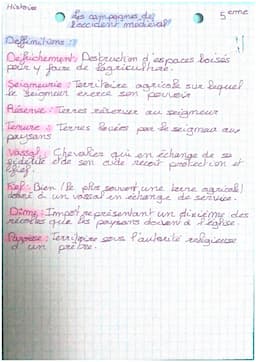 Histoire
5 eme
Les campagnes de
l'occident médiéval
Deffinitions :
Defrichement: Destruction d'espaces boisés
pour y faire de l'agriculture.
Seigneurie : Territoire agricole sur lequel
le Seigneur exerce son pouvoir
Réserve : Terres réservées au seigneur
Tenure : Terres louées par le seigneur aux
paysans
Vassal : Chevalier qui en échange de sa
fidélité et de son aide reçoit protection et
fief.
Fief : Bien (le plus souvent une terre agricole)
donné à un vassal en échange de service.
Dîme : Impôt représentant un dixième des
récoltes que les paysans doivent à l'église
Paroisse : Territoire sous l'autorité religieuse
d'un prêtre.